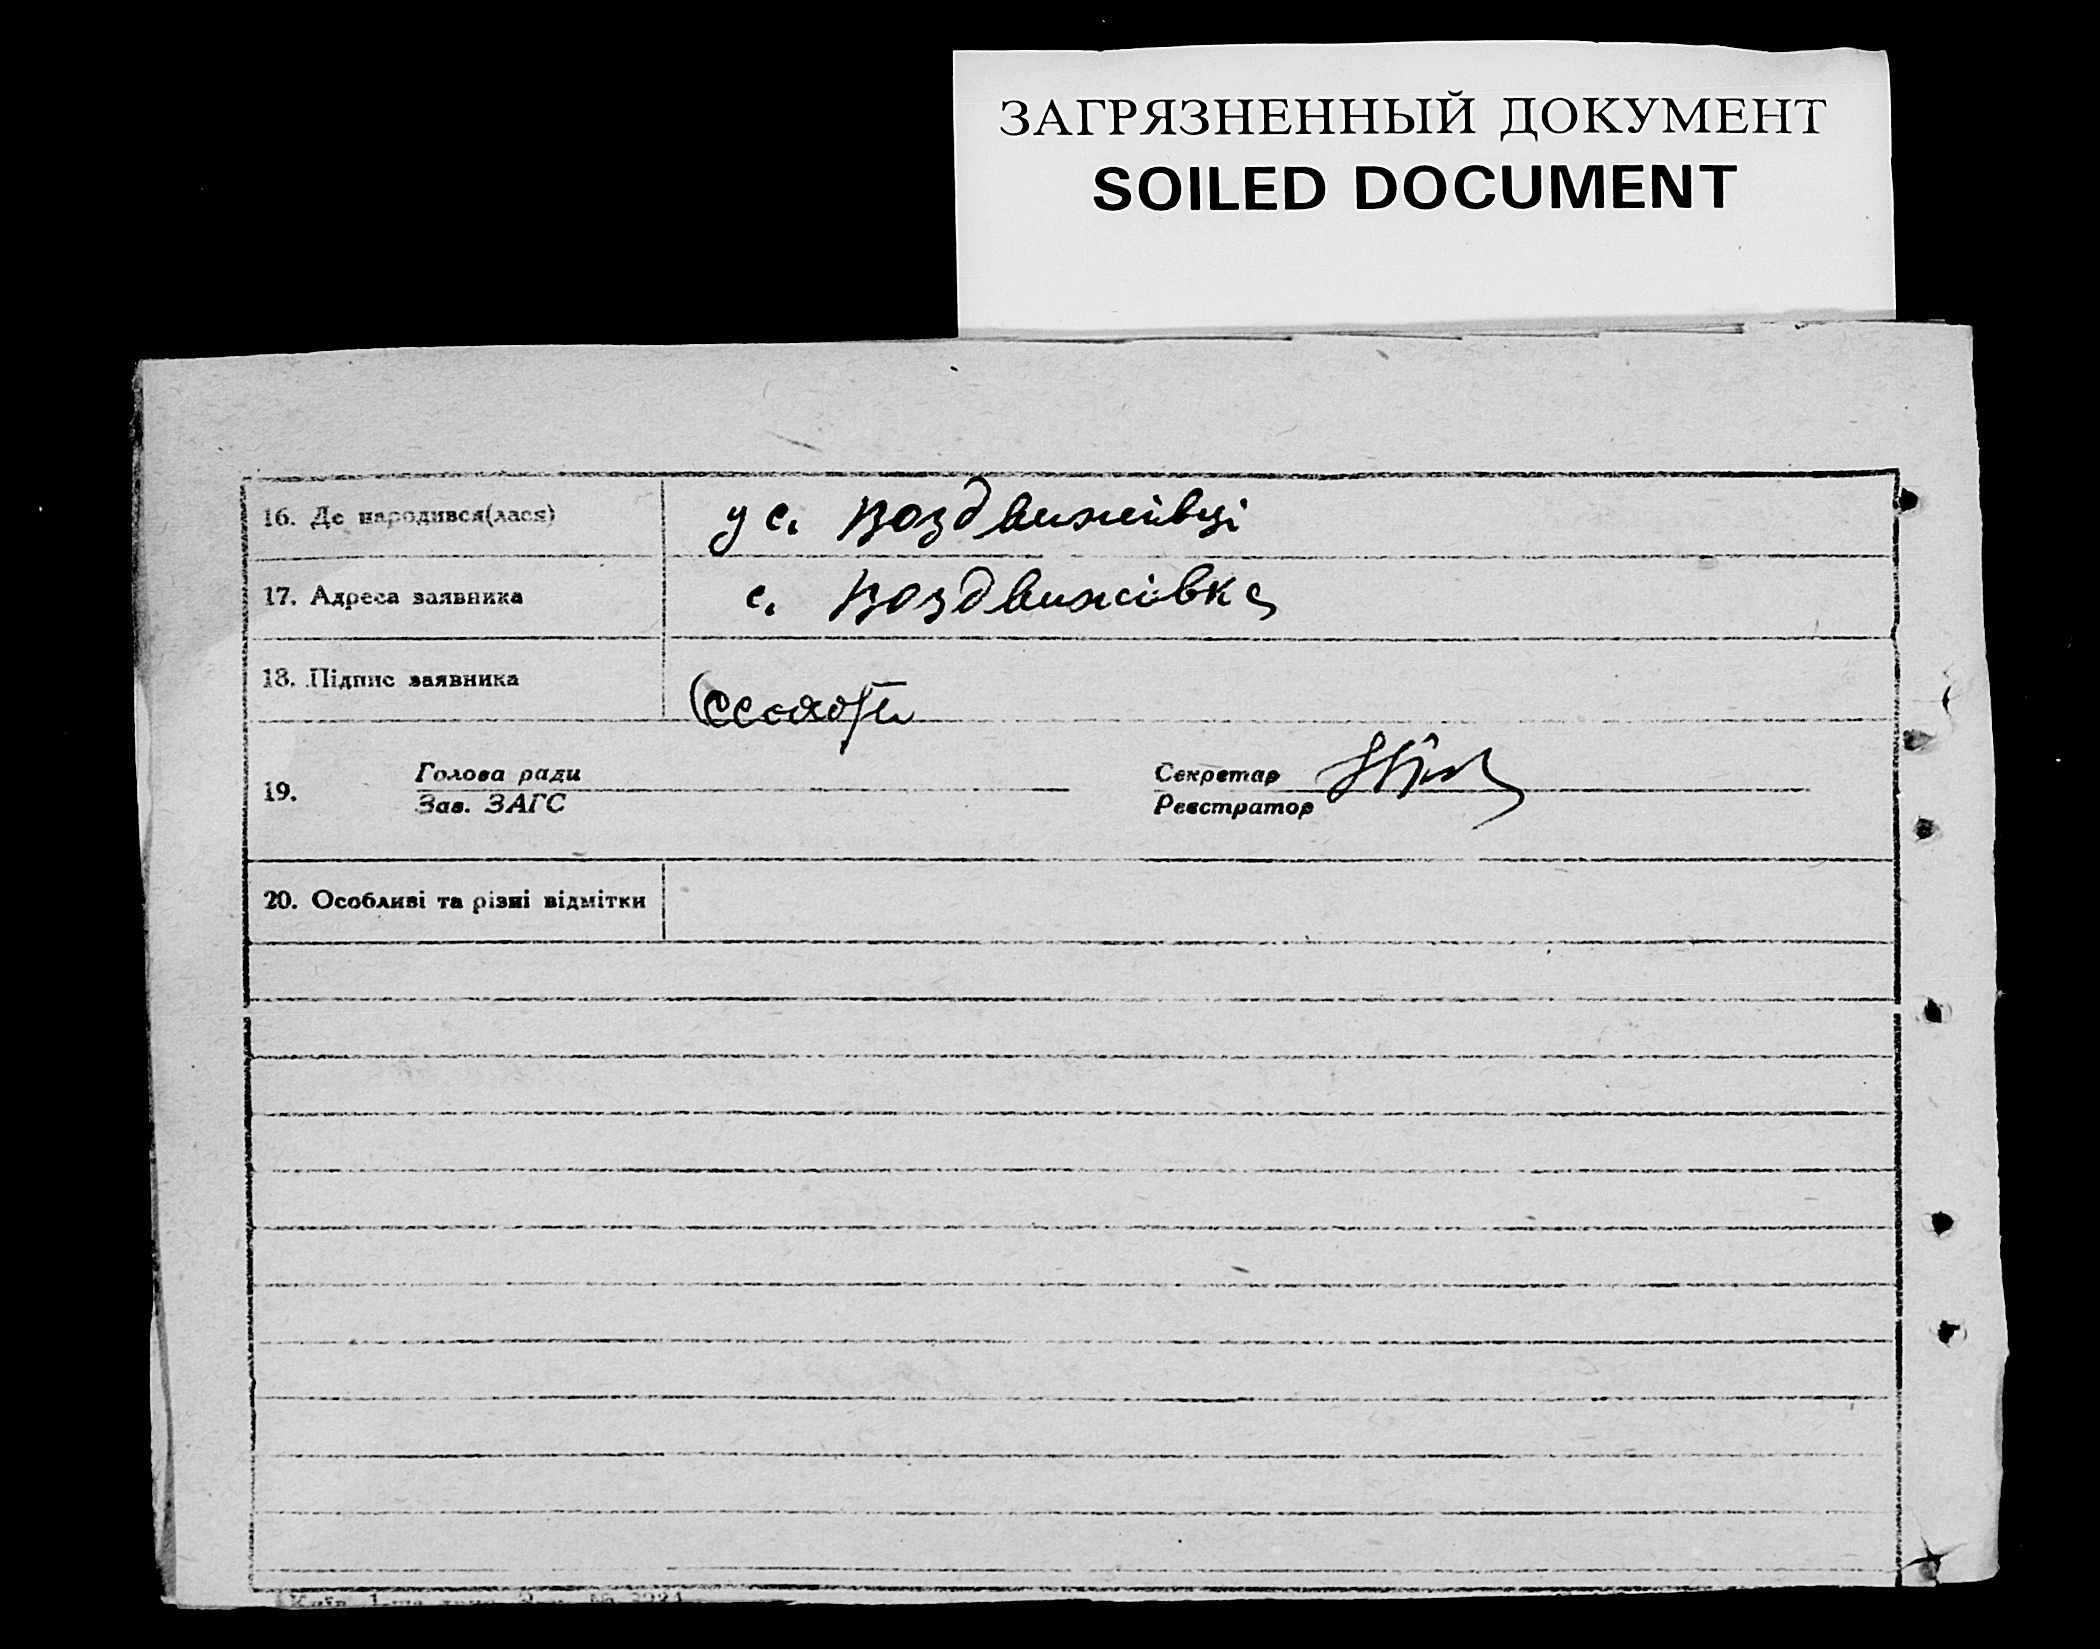 ЗАГРЯЗНЕННЫЙ ДОКУМЕНТ
SOILED DOCUMENT
16. Де народився(лася) у с. Воздвижівці
17. Адреса заявника с. Воздвижівка
18. Підпис заявника
19. Голова ради Секретар
Зав. ЗАГС Реєстратор
20. Особливі та різні відмітки